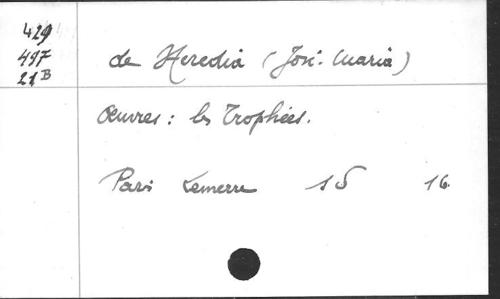 429
497
21 B
de Heredia (José-Maria)
Œuvres : les Trophées.
Paris Lemerre 16.